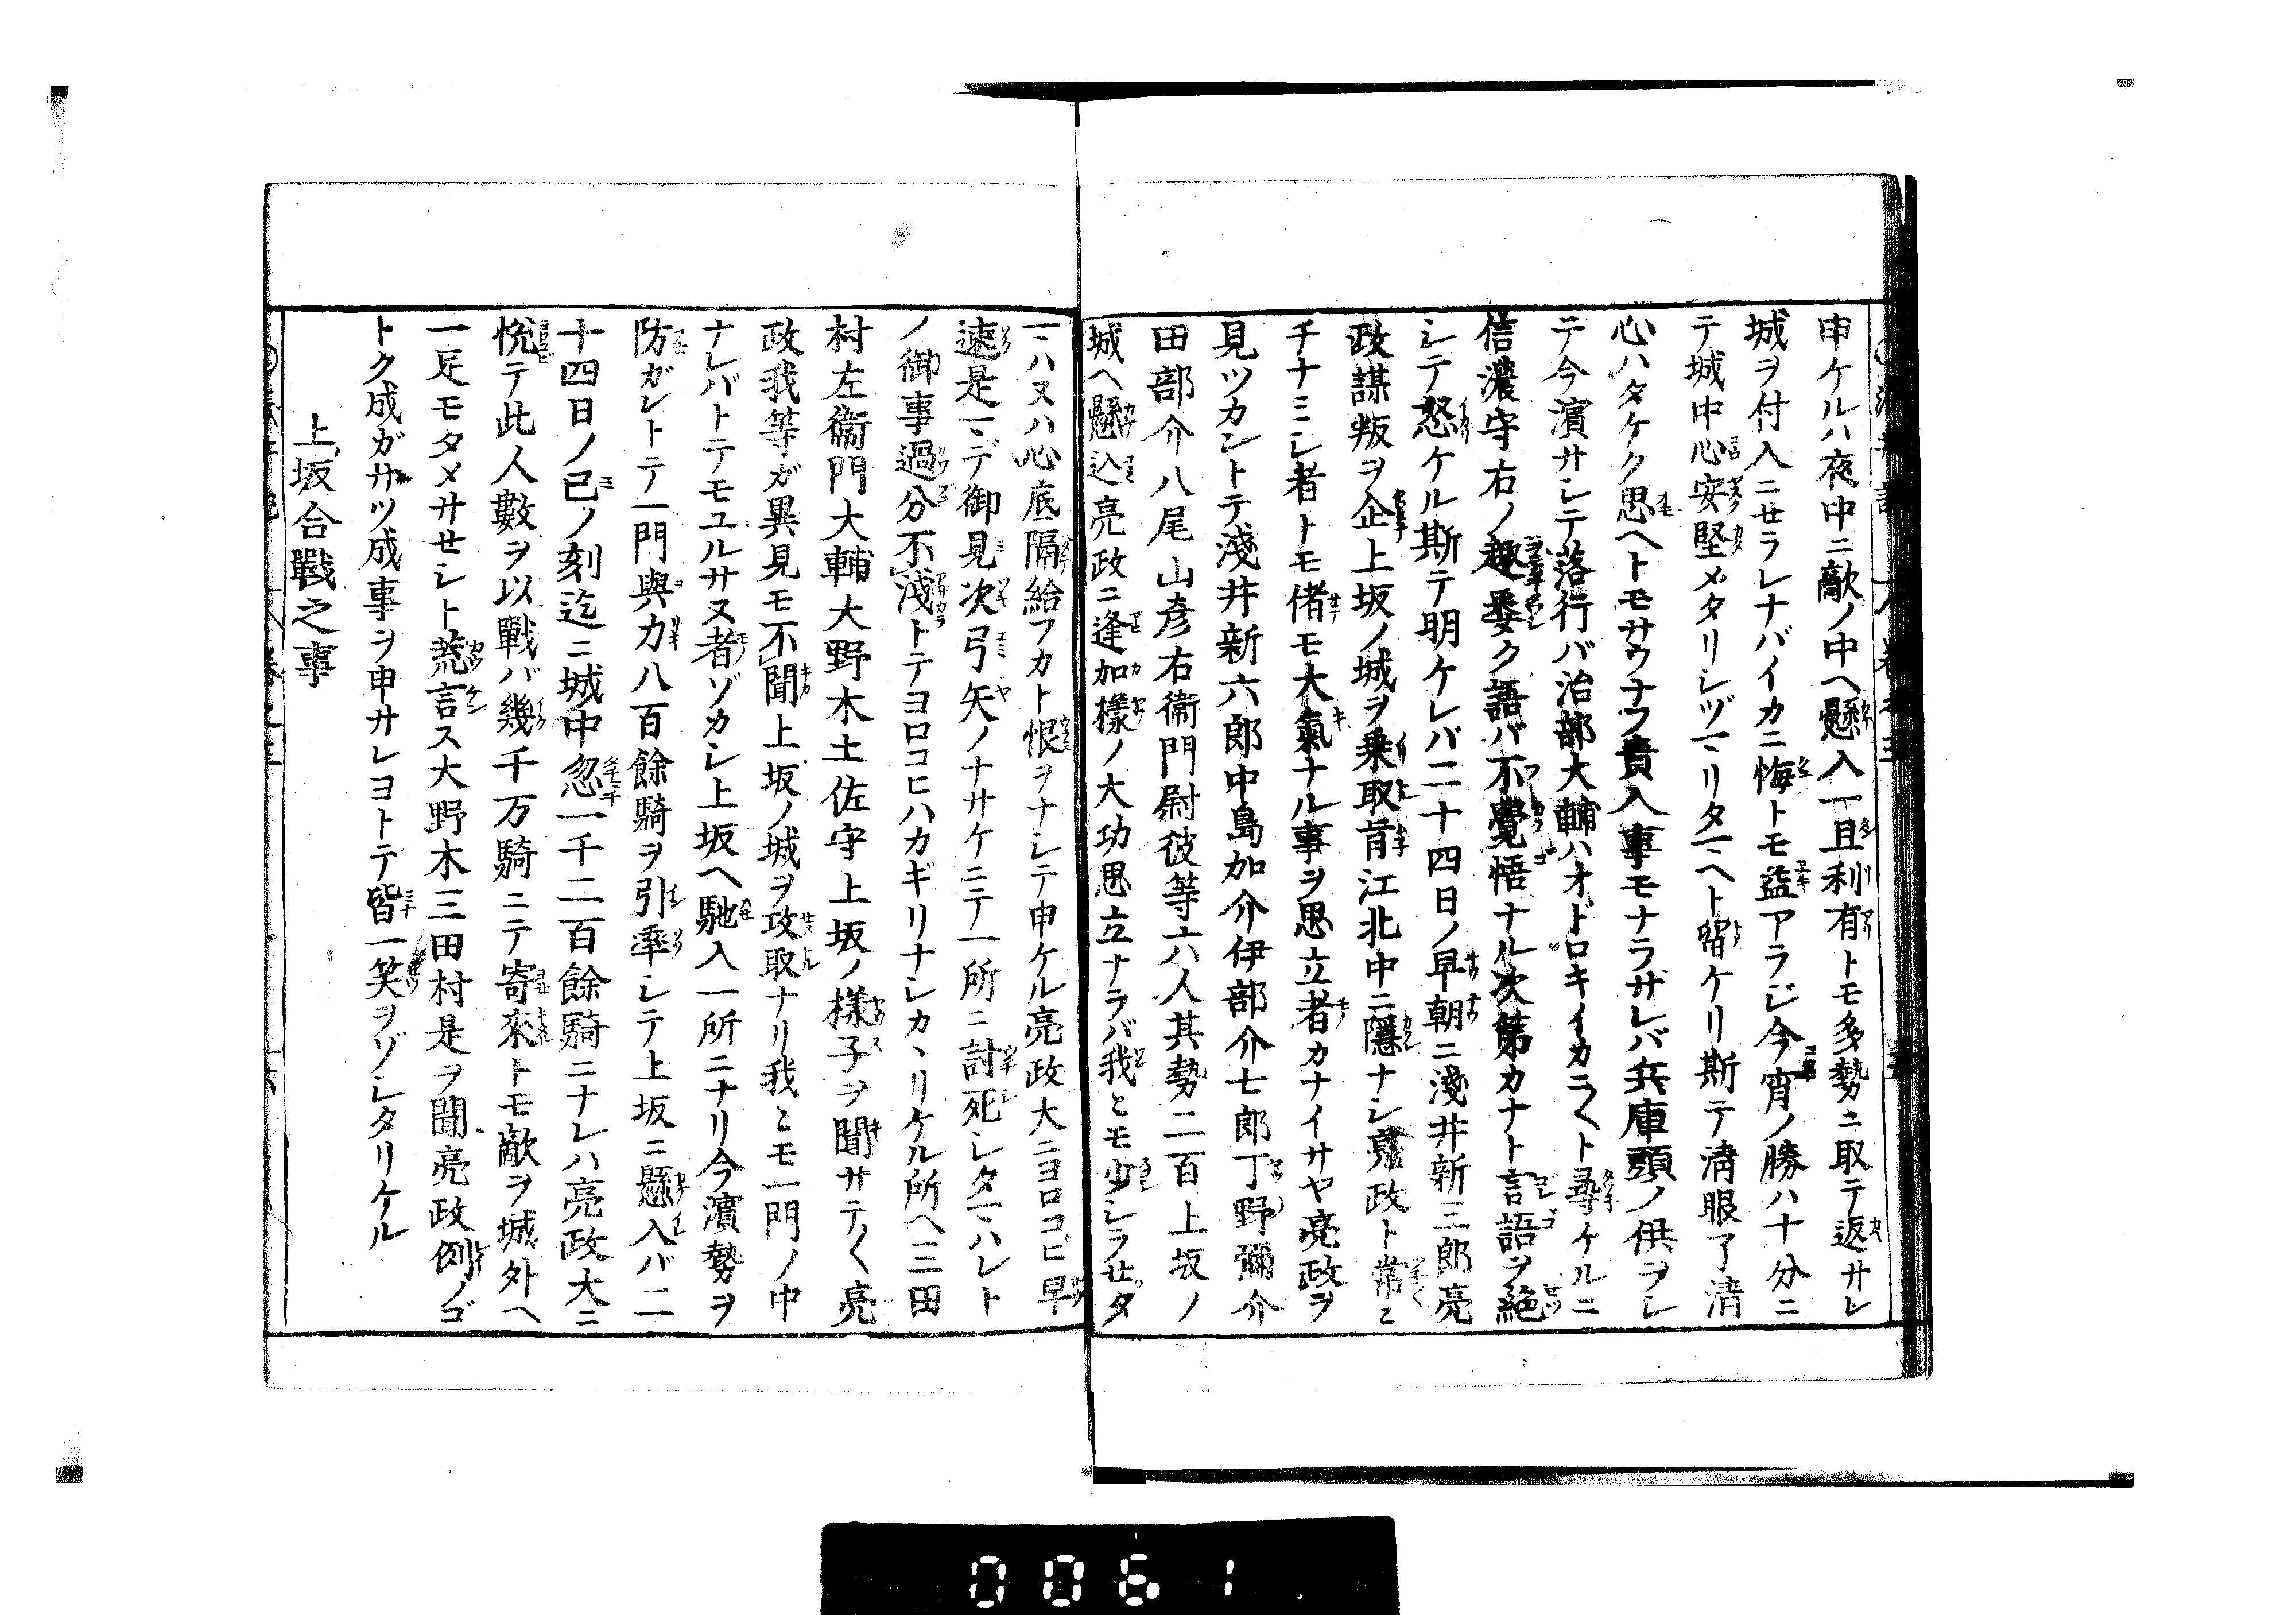 申ケルハ夜中ニ敵ノ中ヘ懸入一旦利有トモ多勢ニ取テ返サレ
城ヲ付入ニセラレナバイカニ悔トモ益アラジ今宵ノ勝ハ十分ニ
テ城中心安堅メタリシヅマリタマヘト留ケリ斯テ淸眼了淸
心ハタケク思ヘトモサウナフ責入事モナラザレバ兵庫頭ノ供ヲレ
テ今濱サシテ落行バ治部大輔ハオドロキイカニ〱ト尋ケルニ
信濃守右ノ趣委ク語バ不覺悟ナル次第カナト言語ヲ絶
シテ怒ケル斯テ明ケレバ二十四日ノ早朝ニ淺井新三郎亮
政謀叛ヲ企上坂ノ城ヲ乗取背江北中ニ隱ナシ亮政ト常〻
チナミシ者トモ偖モ大氣ナル事ヲ思立者カナイサヤ亮政ヲ
見ツカントテ淺井新六郎中島加介伊部介七郎丁野彌介
田部介八尾山彦右衞門尉彼等六人其勢二百上坂ノ
城ヘ懸込亮政ニ逢加樣ノ大功思立ナラバ我〻モ少シラセタ
マハヌハ心底隔給フカト恨ヲナシテ申ケル亮政大ニヨロコビ早
速是マデ御見次弓矢ノナサケニテ一所ニ討死シタマハレト
ノ御事過分不淺トテヨロコヒハカギリナシカヽリケル所ヘ三田
村左衞門大輔大野木土佐守上坂ノ樣子ヲ聞サテ〱亮
政我等ガ異見モ不聞上坂ノ城ヲ攻取ナリ我〻モ一門ノ中
ナレバトテモユルサヌ者ゾカシ上坂ヘ馳入一所ニナリ今濱勢ヲ
防ガレトテ一門與力八百餘騎ヲ引率シテ上坂ニ懸入バ二
十四日ノ巳ノ刻迄ニ城中忽一千二百餘騎ニナレハ亮政大ニ
悅テ此人數ヲ以戰バ幾千万騎ニテ寄來トモ敵ヲ城外ヘ
一足モタメサセシト荒言ス大野木三田村是ヲ聞亮政例ノゴ
トク成ガサツ成事ヲ申サレヨトテ皆一笑ヲゾシタリケル
上坂合戰之事
0061